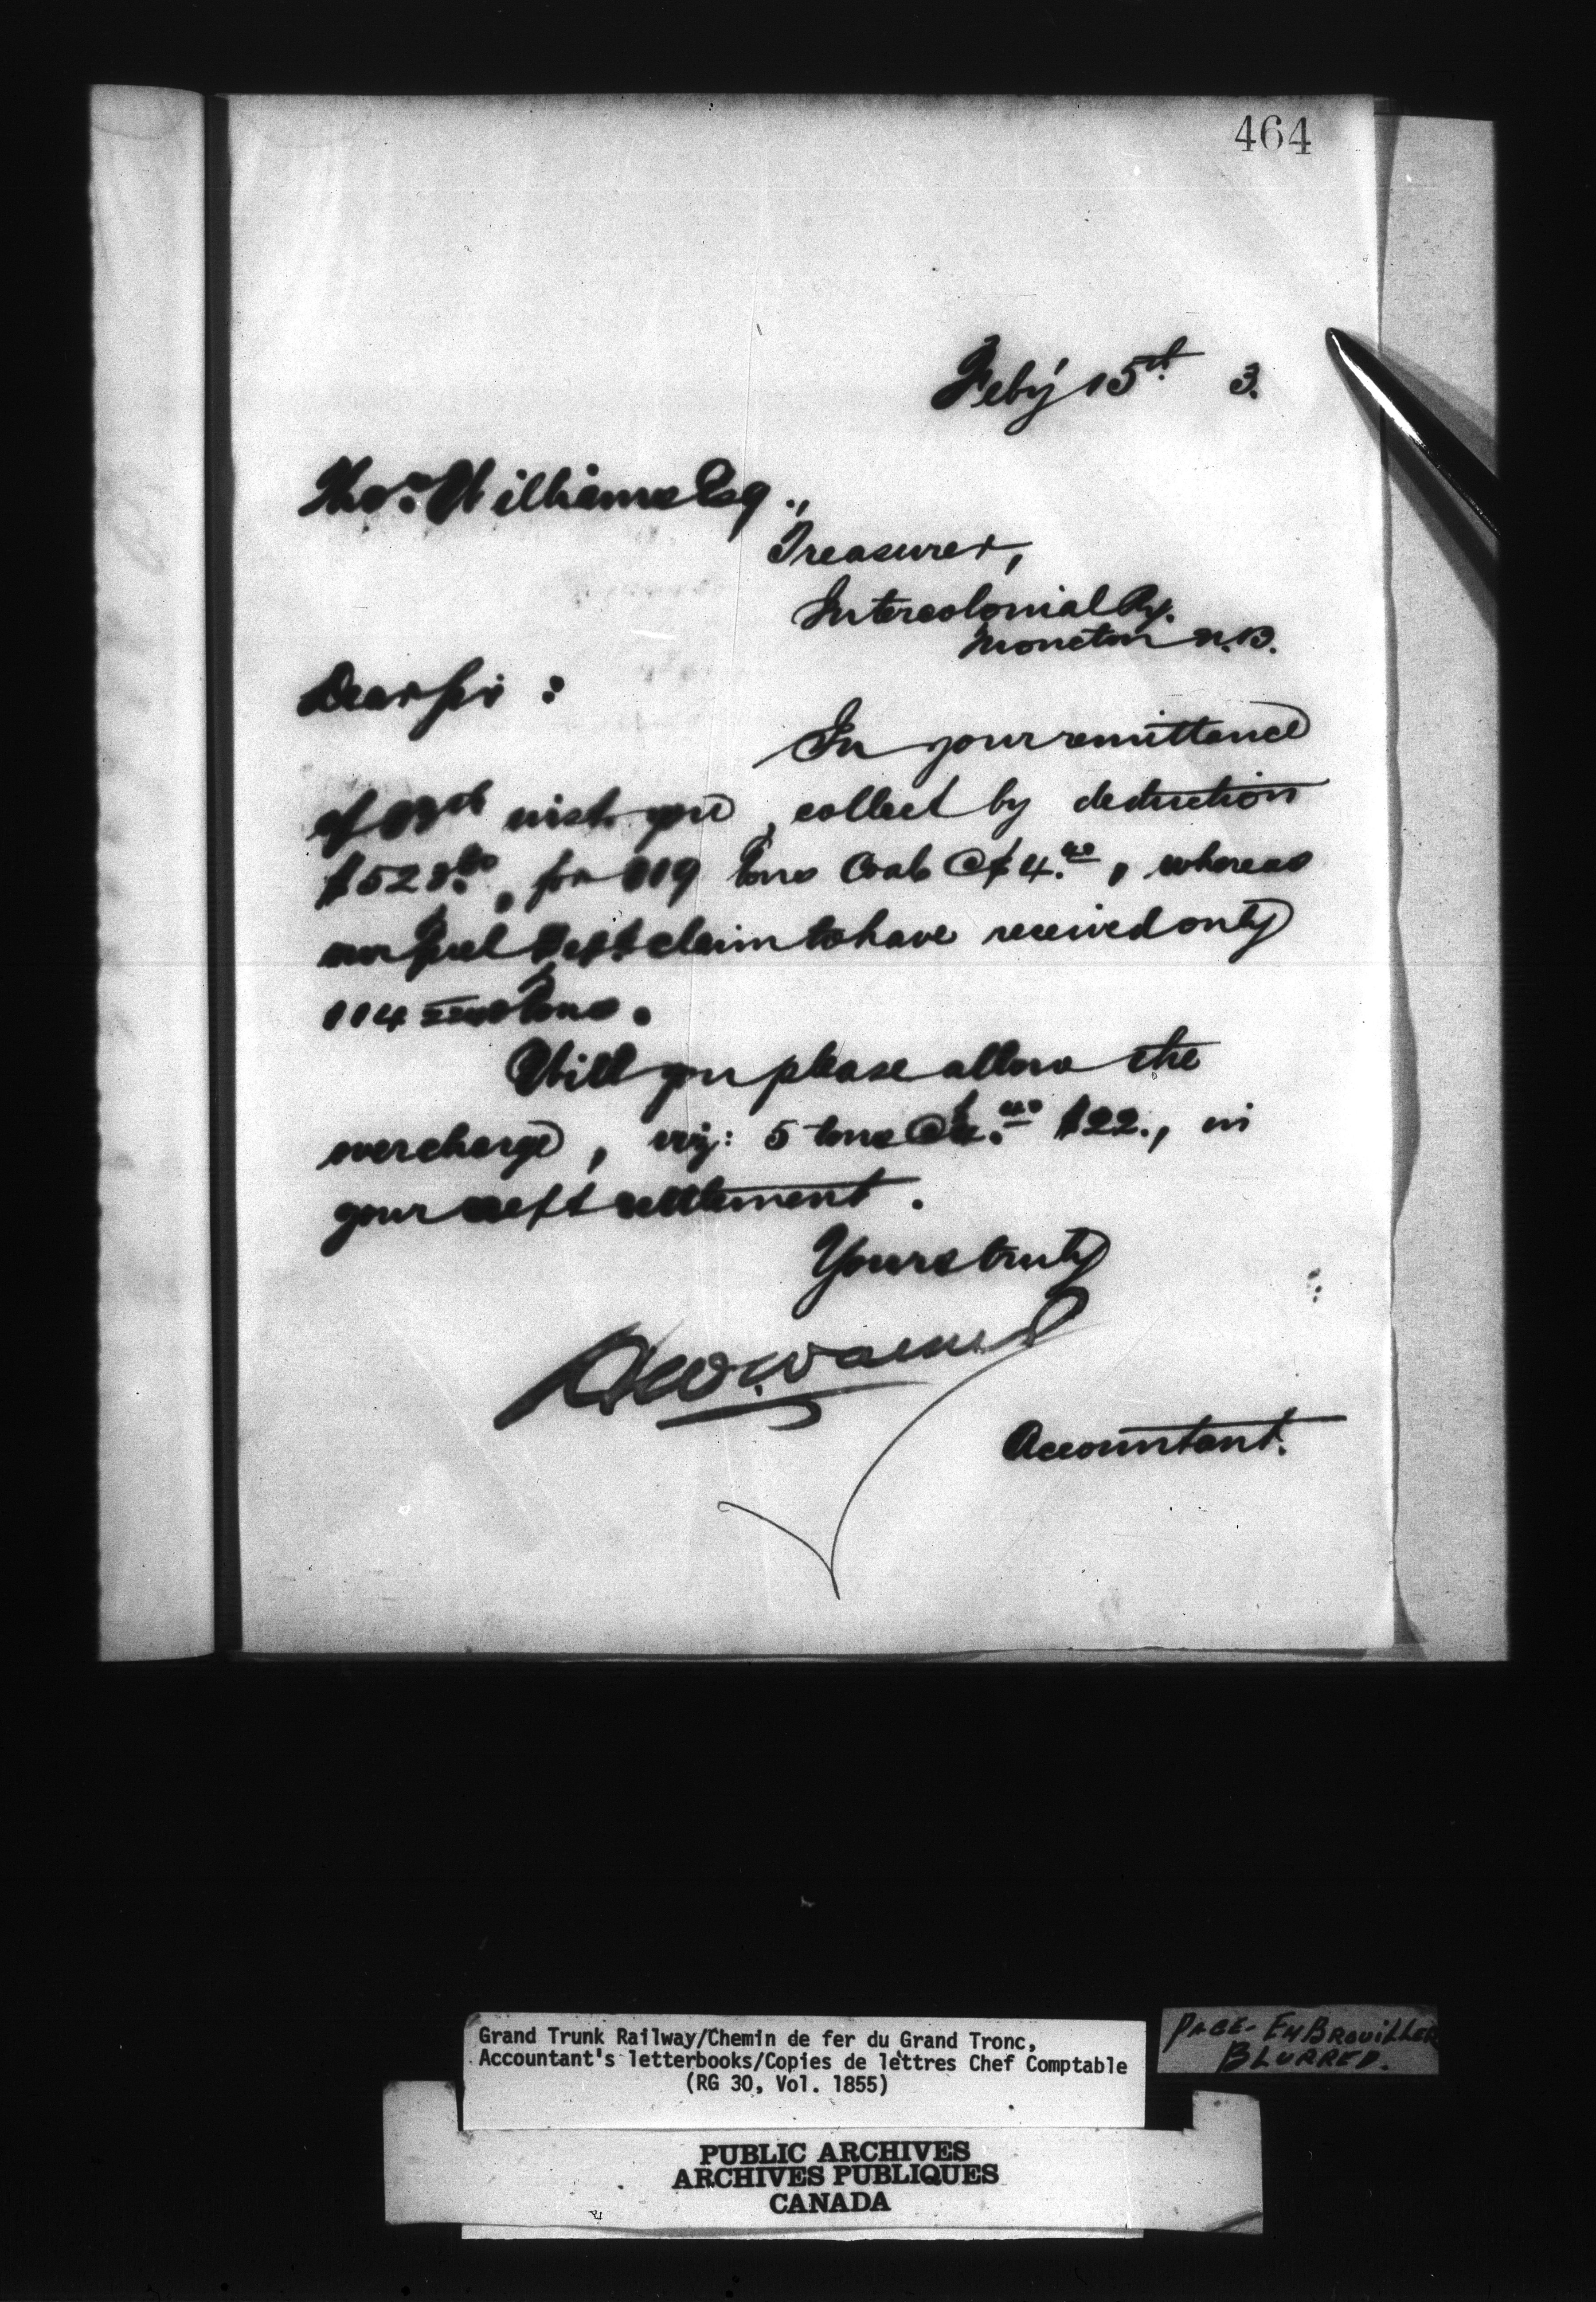 464
Feby 15th 3.
Thos. Williams Esq.,
Treasurer,
Intercolonial Ry.
Moncton N.B.
Dear Sir :
In your remittance
of 13th inst. you, collect by deduction
$523.60, for 119 tons Coal @ $4.40, whereas
our Fuel Dept claim to have received only
114 tons.
Will you please allow the
overcharge, viz: 5 tons @ 4.40 $22., in
your next settlement.
Yours truly
H W Walker
Accountant.
Grand Trunk Railway/Chemin de fer du Grand Tronc,
Accountant's letterbooks/Copies de lettres Chef Comptable
(RG 30, Vol. 1855)
PAGE - EMBROUILLER
BLURRED.
PUBLIC ARCHIVES
ARCHIVES PUBLIQUES
CANADA